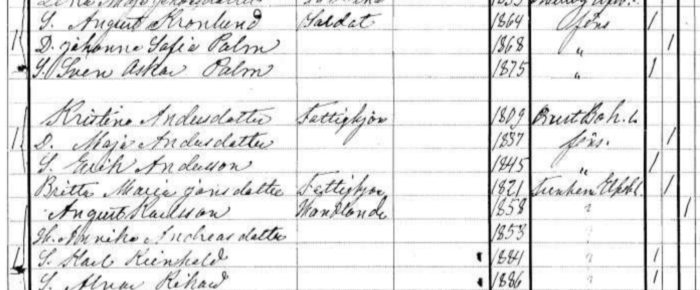 S. August Kronlund Soldat 1864 föns 1
1 D. Johanna Sofia Palm 1868 " 1
S. Sven Askar Palm 1875 " 1
Kristina Andersdatter Fattighjon 1809 Brest Boh. L
1 D. Maja Andersdatter 1837 föns. 1
S. Erik Andersson 1845 " 1
Britta Maria Jonsdatter Fattighjon 1821 1
August Karlsson 1858 " 1
H. Annika Andreasdatter 1853 "
1 S. Karl Reinhold 1884 " 1
S. Alvar Rikard 1886 " 1